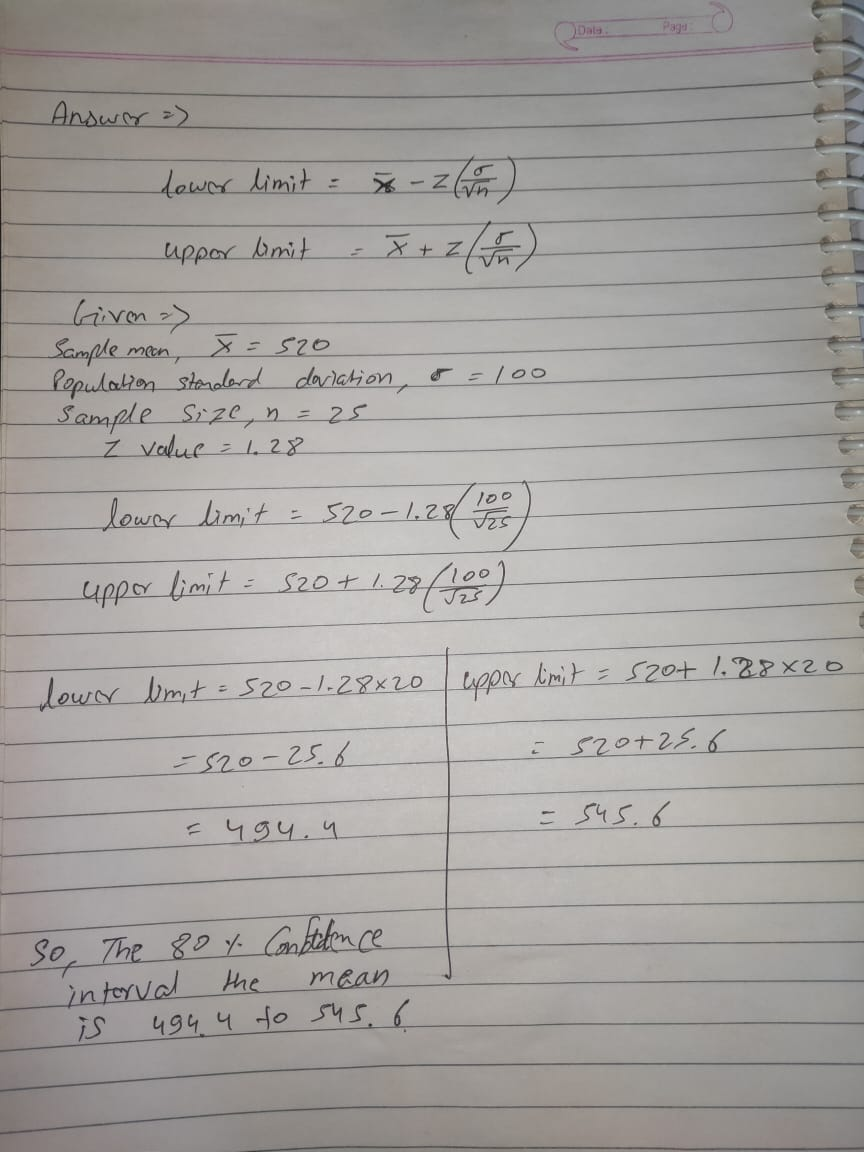 Date: Page:
Answer =>
lower limit = x̄ - z(σ/√n)
upper limit = x̄ + z(σ/√n)
Given =>
Sample mean, x̄ = 520
Population standard deviation, σ = 100
Sample Size, n = 25
Z value = 1.28
lower limit = 520 - 1.28(100/√25)
upper limit = 520 + 1.28(100/√25)
lower limit = 520 - 1.28×20
= 520 - 25.6
= 494.4
upper limit = 520 + 1.28×20
= 520 + 25.6
= 545.6
So, The 80 % Confidence
interval the mean
is 494.4 to 545.6